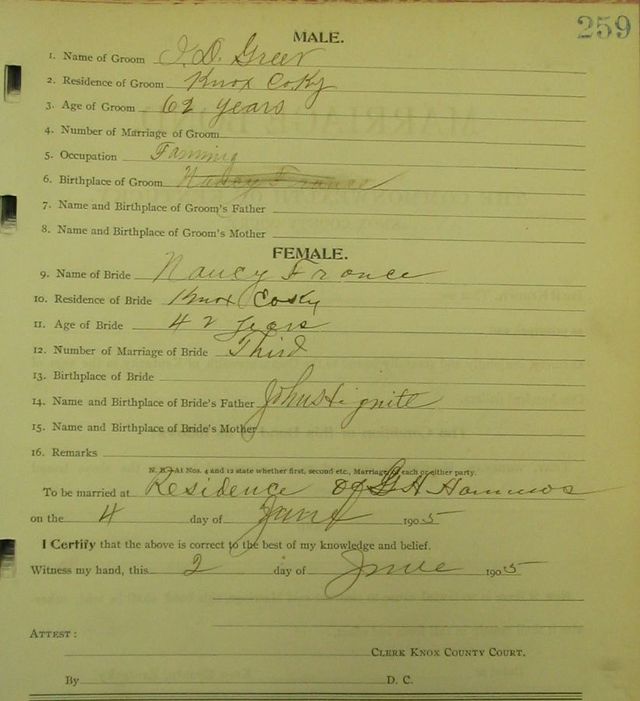 259
MALE.
1. Name of Groom J. D. Greer
2. Residence of Groom Knox Co Ky
3. Age of Groom 62 years
4. Number of Marriage of Groom
5. Occupation Farming
6. Birthplace of Groom Nancy France
7. Name and Birthplace of Groom's Father
8. Name and Birthplace of Groom's Mother
FEMALE.
9. Name of Bride Nancy France
10. Residence of Bride Knox Co Ky
11. Age of Bride 42 years
12. Number of Marriage of Bride Third
13. Birthplace of Bride
14. Name and Birthplace of Bride's Father John Hignite
15. Name and Birthplace of Bride's Mother
16. Remarks
N. B.—At Nos. 4 and 12 state whether first, second etc., Marriage of each or either party.
To be married at Residence of G H Hammos
on the 4 day of June 1905
I Certify that the above is correct to the best of my knowledge and belief.
Witness my hand, this 2 day of June 1905
ATTEST:
CLERK KNOX COUNTY COURT.
By D. C.